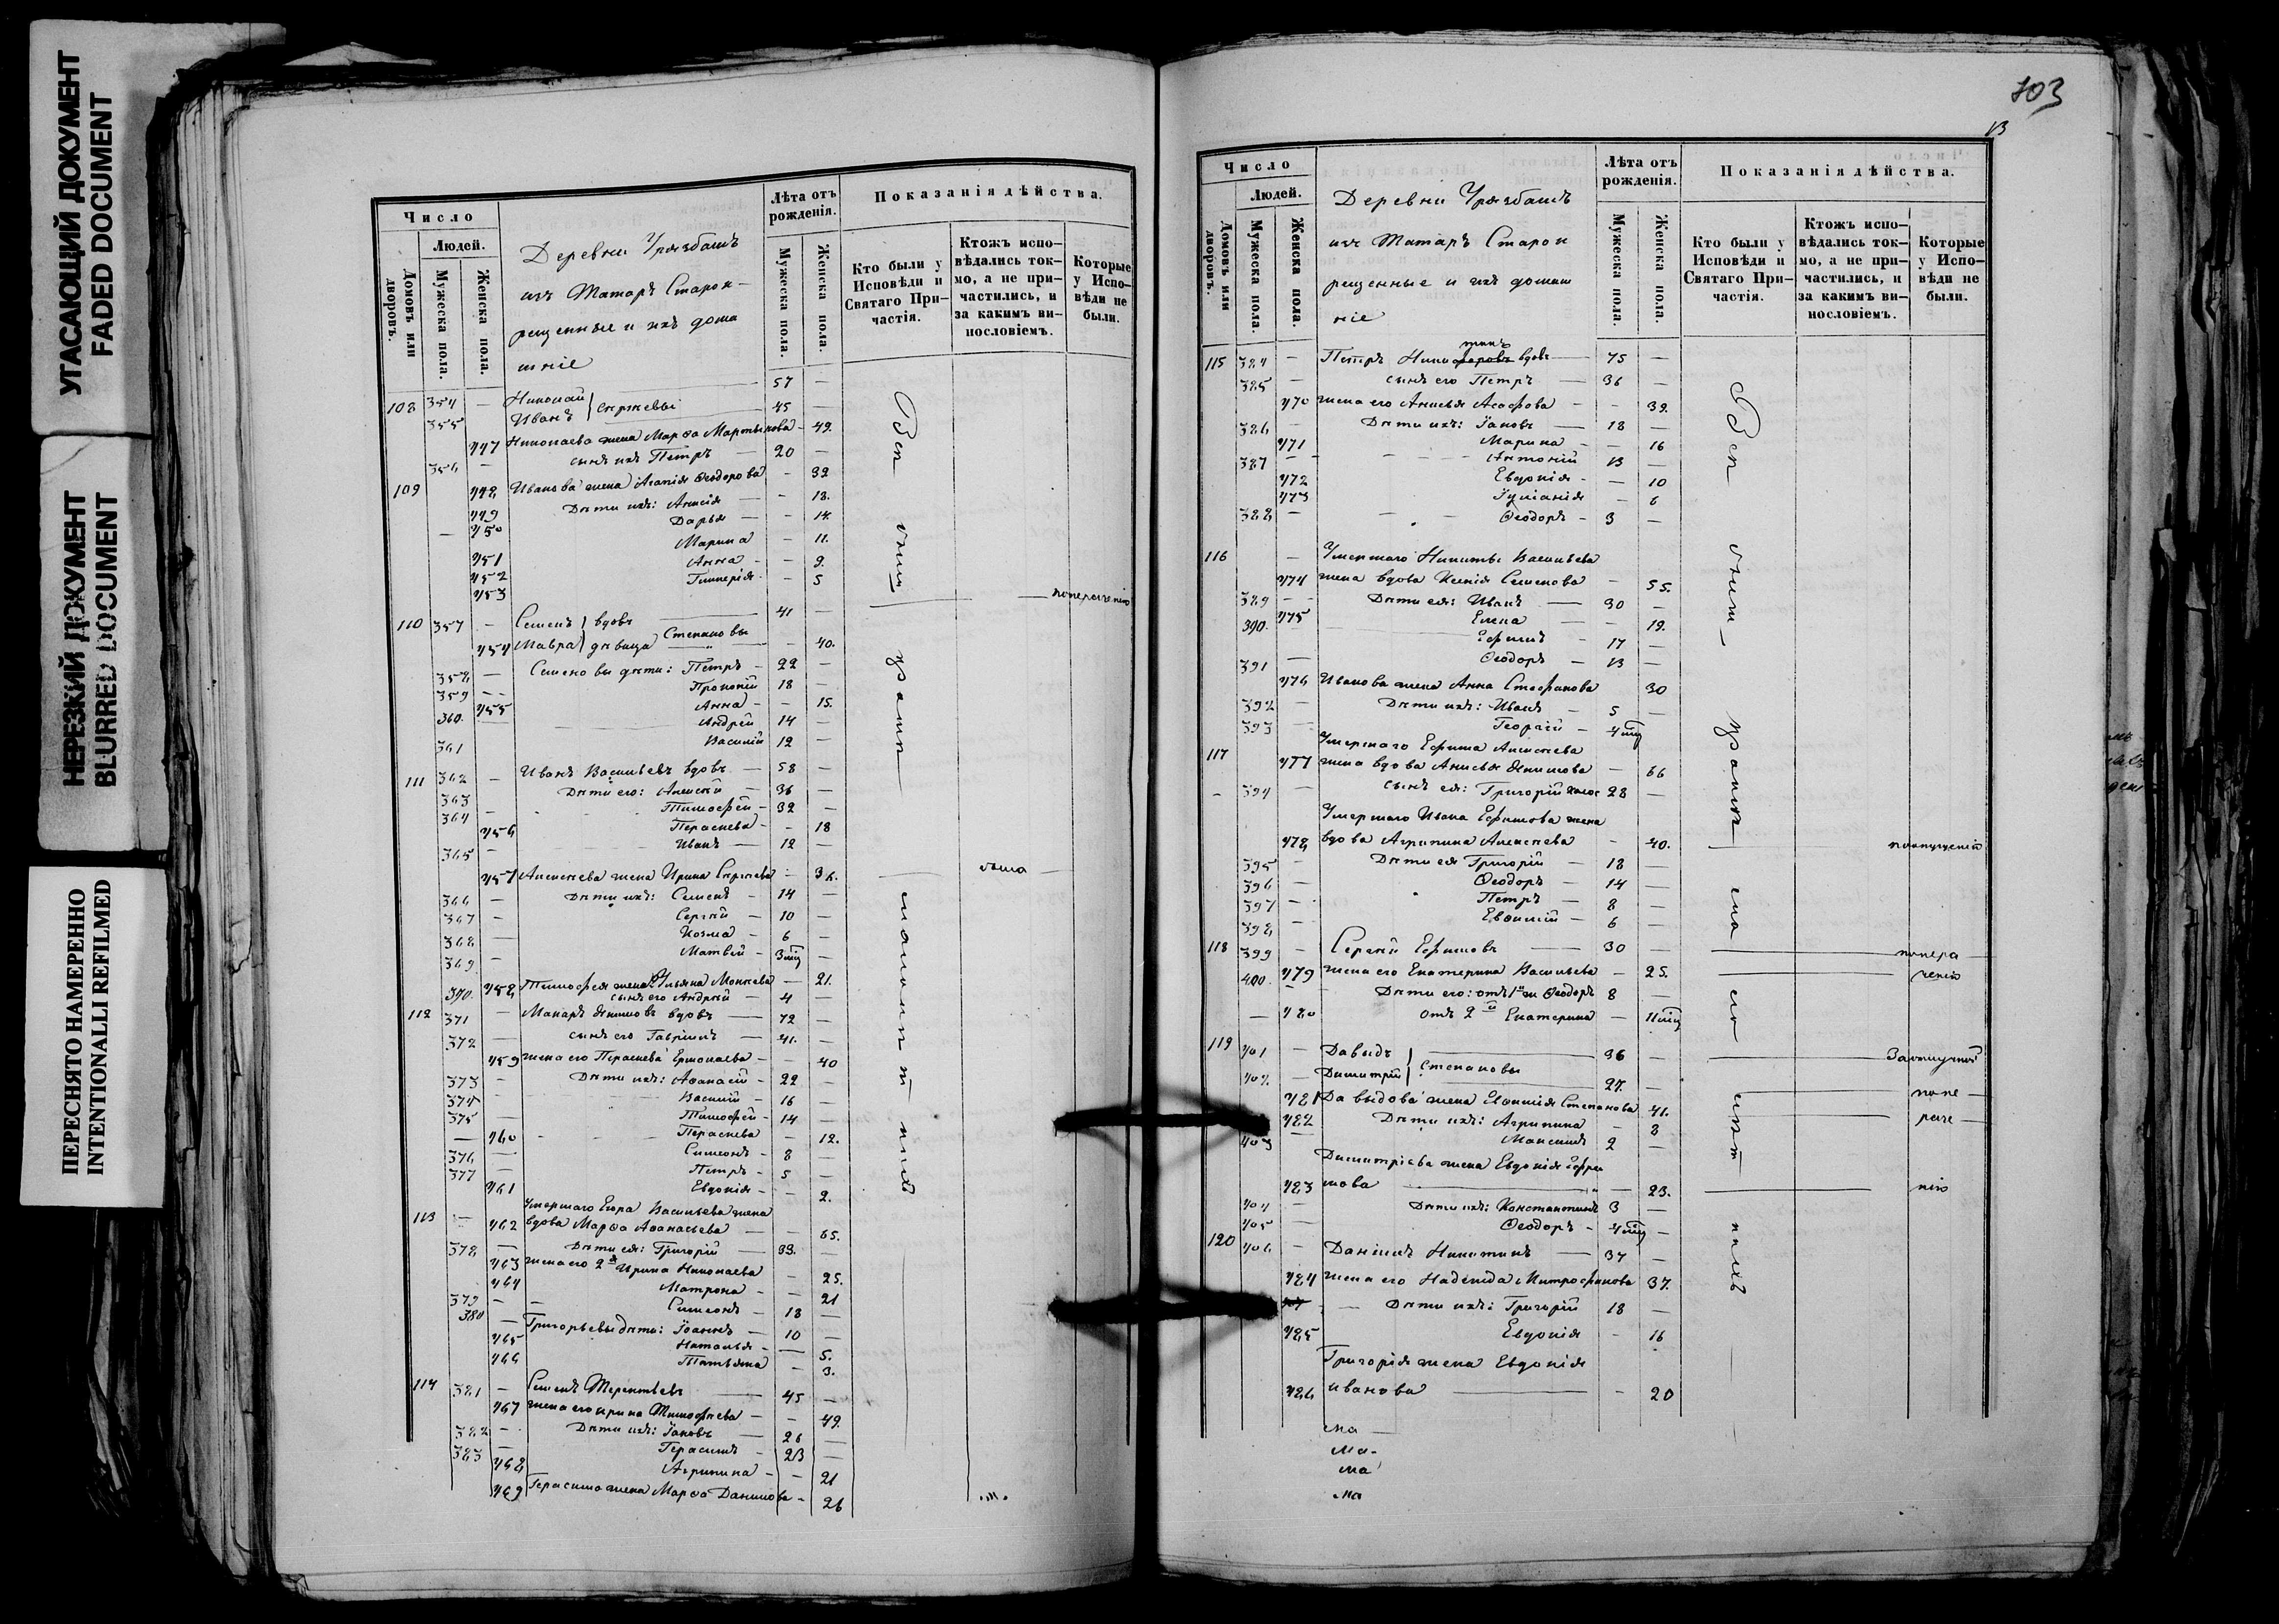 УГАСАЮЩИЙ ДОКУМЕНТ
FADED DOCUMENT
НЕРЕЗКИЙ ДОКУМЕНТ
BLURRED DOCUMENT
ПЕРЕСНЯТО НАМЕРЕННО
INTENTIONALLI REFILMED
Число
Людей.
Домовъ или дворовъ.
Мужеска пола.
Женска пола.
Деревни
изъ Татаръ Старок-
рещенные и ихъ дома
шніе
Лѣта отъ рожденія.
Мужеска пола.
Женска пола.
Показанія дѣйства.
Кто были у Исповѣди и Святаго Причастія.
Ктожъ исповѣдались токмо, а не причастились, и за какимъ винословіемъ.
Которые у Исповѣди не были.
108 354 — Николай 57 —
355 Иванъ } Сергѣевы 45 —
447 Николаева жена Марѳа Мартынова - 49.
356 — сынъ ихъ Петръ — 20 —
109 448 Иванова жена Агапія Ѳеодорова - 39
449 Дѣти ихъ: Анисія — - 18.
450 Дарья — - 14.
451 Марина - 11.
452 Анна - - 9.
453 Гликерія - - 5
110 357 — Семенъ } вдовъ 41 —
454 Мавра } дѣвица Степановы - 40.
358 — Семеновы дѣти: Петръ - 22 —
359 Прокопій 18 —
455 Анна - - 15.
360. Андрей 14 —
361 Василій 12 —
111 362 — Иванъ Васильевъ вдовъ — 58 —
363 Дѣти его: Алексѣй — 36 —
364 — Тимофей - 32 —
456 Параскева - - 18
365 — Иванъ — 12 —
457 Алексѣева жена Ирина Сергѣева - 36.
366 — Дѣти ихъ: Семенъ - 14 —
367 — Сергѣй — 10 —
368 — Козма - 6 —
369 — Матвѣй - 3 мц —
458 Тимофея жена Ульяна Моисеева — 21.
370. сынъ его Андрей — 4 —
112 371 — Макаръ Данилов вдовъ — 72 —
372 — сынъ его Гавріилъ — 41. —
459 жена его Параскева Ермолаева - - 40
373 — Дѣти ихъ: Аѳанасій - 22 —
374 Василій - 16 —
375 — Тимофей - 14 —
— 460 Параскева - 12.
376 — Симеонъ - 8 —
377 — Петръ - 5 —
461 Евдокія - - 2.
Умершаго Егора Васильева жена
113 — 462 вдова Марѳа Аѳанасьева — — 65.
378 — Дѣти ея: Григорій — 33. —
463 жена его 2я Ирина Николаева - 25.
464 Матрона - - 21
379 — Симеонъ - 18 —
380 — Григорьевы дѣти: Іоаннъ — 10 —
465 Наталья - — 5.
466 Татьяна - 3.
114 381 — Семенъ Терентьевъ 45 —
467 жена его Ирина Тимофеева - - 49.
382 — Дѣти ихъ: Іаковъ — 26 —
383 — Герасимъ - 23 —
468 Агрипина - - 21
469 Герасима жена Марѳа Данилова - 26
Всѣ
были
у
были
103
13
Число
Людей.
Домовъ или дворовъ.
Мужеска пола.
Женска пола.
Деревни
изъ Татаръ Старок
рещенные и ихъ домаш
ніе
Лѣта отъ рожденія.
Мужеска пола.
Женска пола.
Показанія дѣйства.
Кто были у Исповѣди и Святаго Причастія.
Ктожъ исповѣдались токмо, а не причастились, и за какимъ винословіемъ.
Которые у Исповѣди не были.
115 384 — Петръ Никитинъ вдовъ — 75 —
385 — сынъ его Петръ — 36 —
470 жена его Анисья Асафова — - 39.
386 — Дѣти ихъ: Іаковъ — 18 —
471 Марина - — 16
387 — Антоній 13 —
472 Евдокія - — 10
473 Іуліанія - 6
388 — Ѳеодоръ - 3 —
116 — Умершаго Никиты Васильева
474 жена вдова Ксенія Семенова - 55.
389 — Дѣти ея: Иванъ — 30 —
475 Елена — - 19.
390. Ефимъ - 17 —
391 — Ѳеодоръ — 13 —
476 Иванова жена Анна Стефанова 30
392 — Дѣти ихъ: Иванъ - 5 —
393 — Георгій - 4 мц
Умершаго Ефима Алексѣева
117 477 жена вдова Анисья Данилова — 66
394 — сынъ ея: Григорій холос 28 —
Умершаго Ивана Ефимова жена
478 вдова Агрипина Алексѣева - 40.
395 — Дѣти ея Григорій — 18 —
396 — Ѳеодоръ — 14 —
397 — Петръ — 8 —
398 — Евѳимій — 6 —
118 399 — Сергѣй Ефимовъ — 30 —
479 жена его Екатерина Васильева - 25.
400. — Дѣти его: отъ 1й ж Ѳеодоръ 8 —
— 480 отъ 2й Екатерина — 11 мц
119 401 — Давыдъ } 36 —
402. — Димитрій } Степановы 27. —
481 Давыдова жена Евѳимія Степанова 41.
482 Дѣти ихъ: Агрипина - 8
403 — Максимъ 2 —
Димитріева жена Евдокія Ефи
483 мова - 23.
404 — Дѣти ихъ: Константинъ 3 —
405 — Ѳеодоръ - 4 мц —
120 406 — Даніилъ Никитинъ — 37 —
484 жена его Надежда Митрофанова 37.
— Дѣти ихъ: Григорій 18 —
485 Евдокія - 16
Григорія жена Евдокія
486 Иванова — - 20
Всѣ
были
у
ма
ма
ма
ма